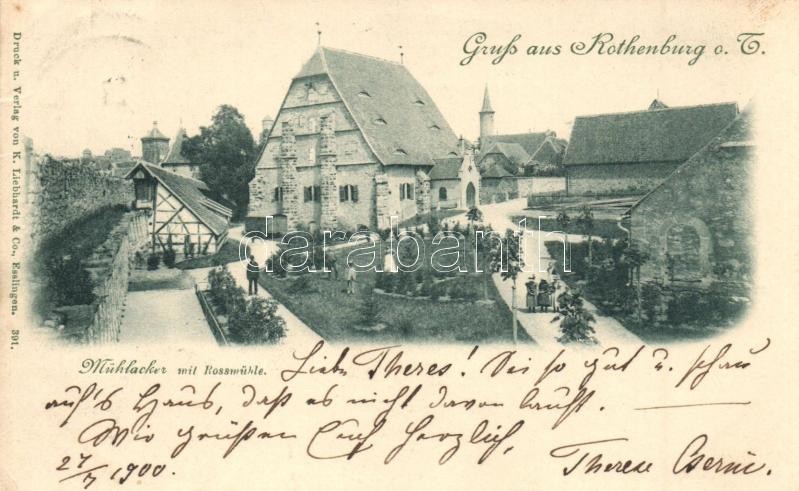 Gruß aus Rothenburg o. T.
Druck u. Verlag von K. Liebhardt & Co., Esslingen. 391.
darabanth.com
Mühlacker mit Rossmühle.
Liebe Theres! Sei so gut u. schau
auf's Haus, daß es nicht davon lauft.
Wir grüßen Euch herzlich,
27/7 1900.
Therese